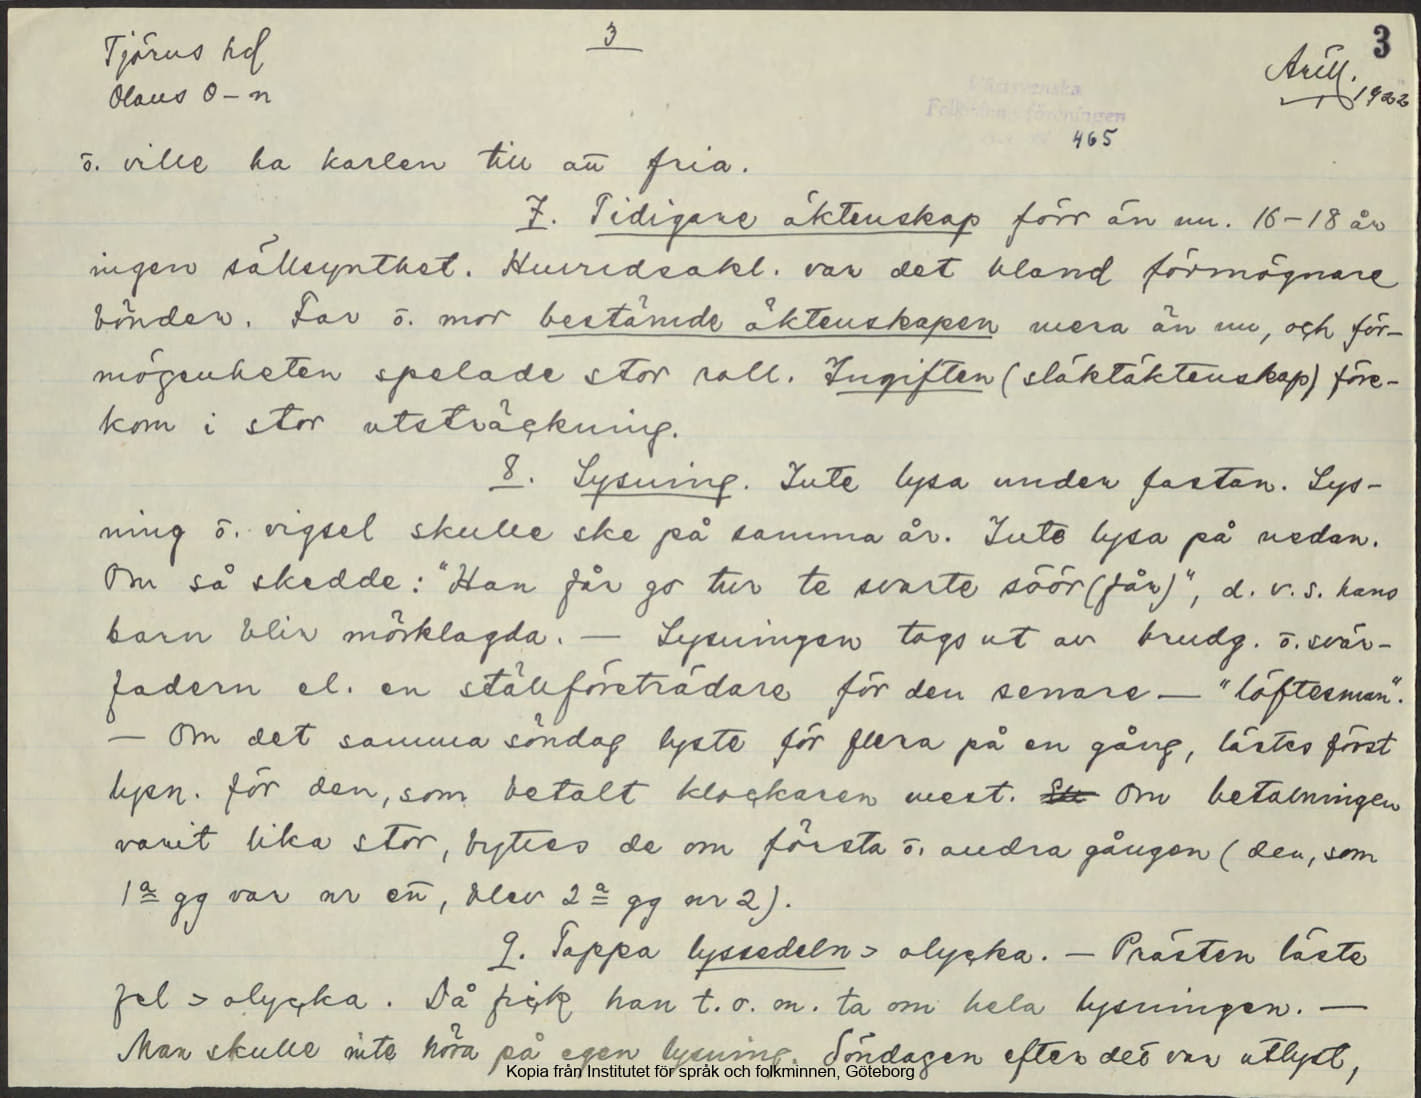 3
3
Tjörns hd
Olaus O-n
Arill.
1922
Västsvenska
Folkminnesföreningen
465
ō. ville ha karlen till att fria.
7. Tidigare äktenskap förr än nu. 16-18 år
ingen sällsynthet. Huvudsakl. var det bland förmögnare
bönder. Far ō. mor bestämde äktenskapen mera än nu, och för-
mögenheten spelade stor roll. Ingiften (släktäktenskap) före-
kom i stor utsträckning.
8. Lysning. Inte lysa under fastan. Lys-
ning ō. vigsel skulle ske på samma år. Inte lysa på nedan.
Om så skedde: "Han får go tur te svarte söör (får)", d.v.s. hans
barn blir mörklagda. — Lysningen togs ut av brudg. ō. svär-
fadern el. en ställföreträdare för den senare — "löftesman".
— Om det samma söndag lyste för flera på en gång, lästes först
lysn. för den, som betalt klockaren mest. Om betalningen
varit lika stor, byttes de om första ō. andra gången (den, som
1a gg var nr ett, blev 2a gg nr 2).
9. Tappa lyssedeln > olycka. — Prästen läste
fel > olycka. Då fick han t.o.m. ta om hela lysningen. —
Man skulle inte höra på egen lysning. Söndagen efter det var utlyst,
Kopia från Institutet för språk och folkminnen, Göteborg